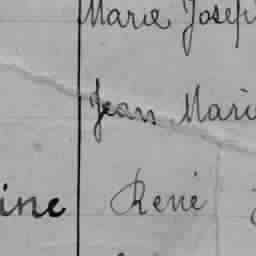 Marie Josep
Jean Mari
ine René